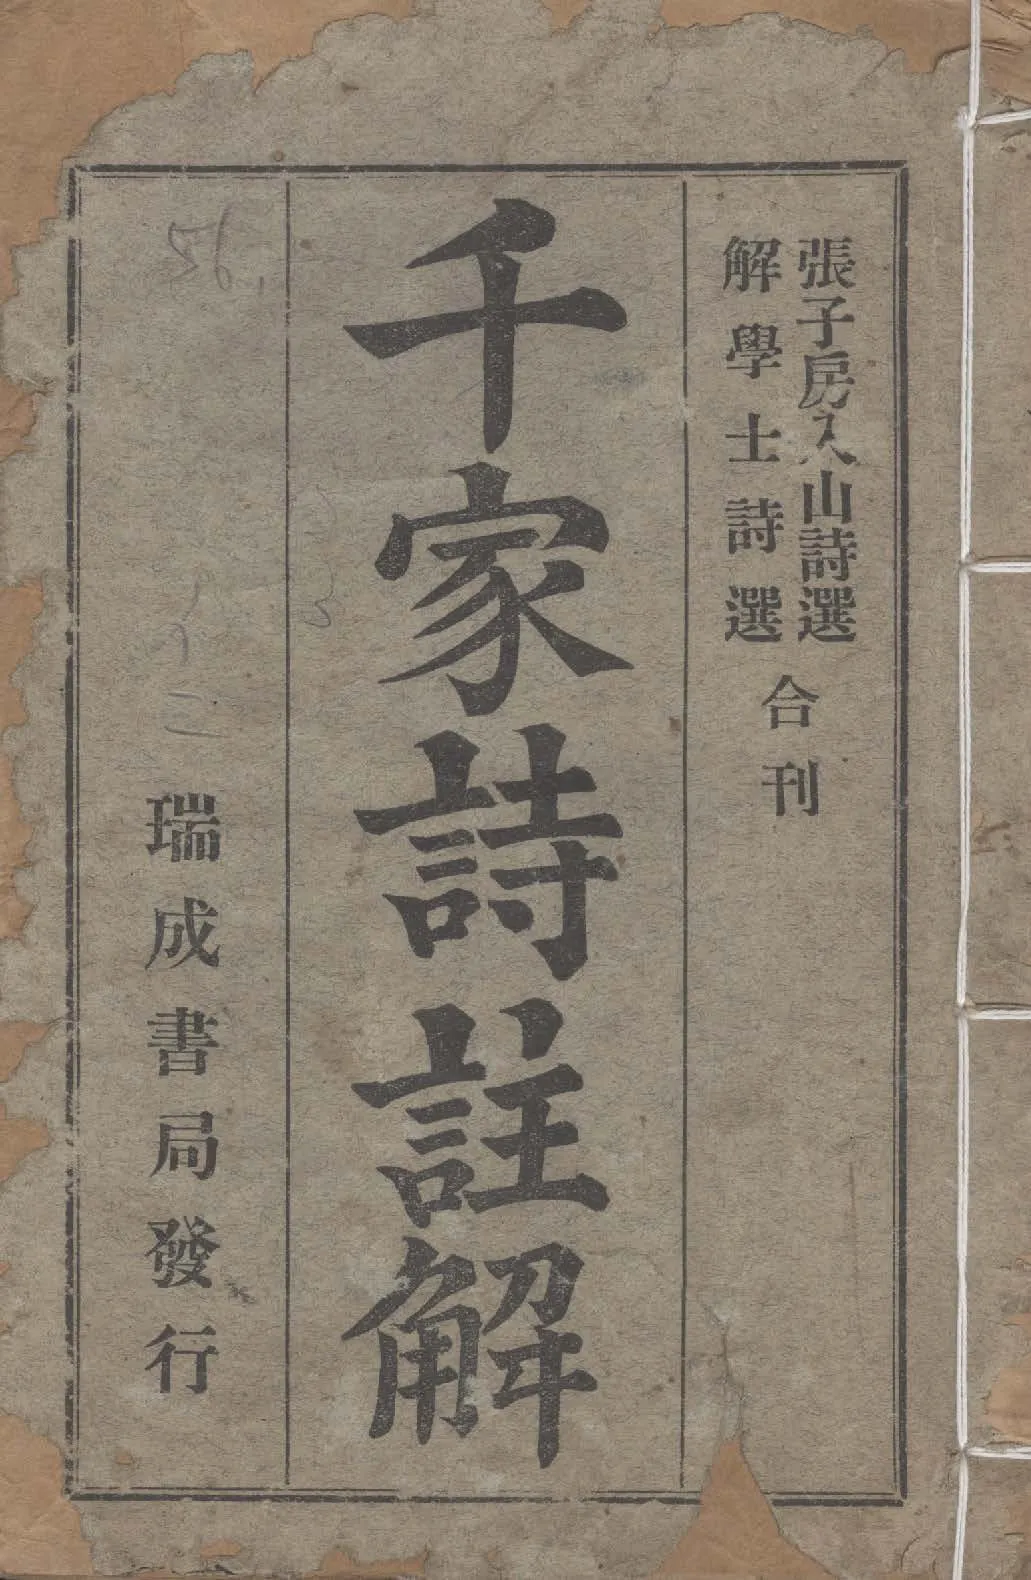 張子房入山詩選
解學士詩選
合刊
千家詩註解
瑞成書局發行
56